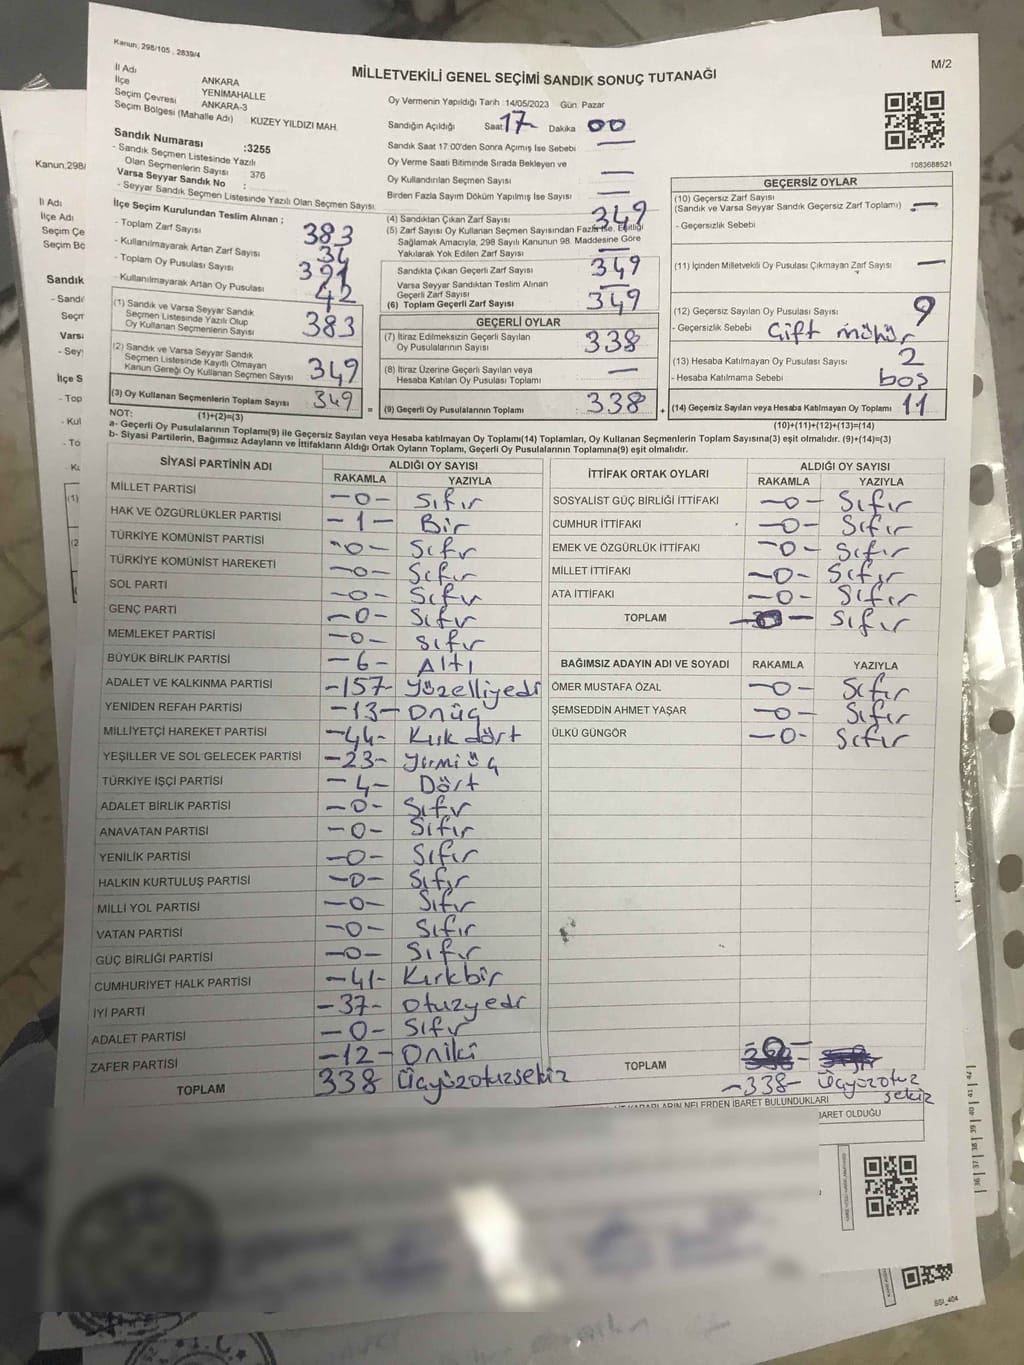 Kanun, 298/105 , 2839/4
MİLLETVEKİLİ GENEL SEÇİMİ SANDIK SONUÇ TUTANAĞI
M/2
İl Adı ANKARA
İlçe YENİMAHALLE
Seçim Çevresi ANKARA-3
Seçim Bölgesi (Mahalle Adı) KUZEY YILDIZI MAH.
Sandık Numarası :3255
- Sandık Seçmen Listesinde Yazılı
Olan Seçmenlerin Sayısı 376
Varsa Seyyar Sandık No :
- Seyyar Sandık Seçmen Listesinde Yazılı Olan Seçmen Sayısı
Oy Vermenin Yapıldığı Tarih :14/05/2023 Gün Pazar
Sandığın Açıldığı Saat 17 Dakika 00
Sandık Saat 17:00'den Sonra Açımış İse Sebebi —
Oy Verme Saati Bitiminde Sırada Bekleyen ve
Oy Kullandırılan Seçmen Sayısı —
Birden Fazla Sayım Döküm Yapılmış İse Sayısı —
1083688521
İlçe Seçim Kurulundan Teslim Alınan ;
- Toplam Zarf Sayısı 383
- Kullanılmayarak Artan Zarf Sayısı 34
- Toplam Oy Pusulası Sayısı 391
- Kullanılmayarak Artan Oy Pusulası 42
(1) Sandık ve Varsa Seyyar Sandık
Seçmen Listesinde Yazılı Olup
Oy Kullanan Seçmenlerin Sayısı 383
(2) Sandık ve Varsa Seyyar Sandık
Seçmen Listesinde Kayıtlı Olmayan
Kanun Gereği Oy Kullanan Seçmen Sayısı 349
(3) Oy Kullanan Seçmenlerin Toplam Sayısı 349
(1)+(2)=(3)
(4) Sandıktan Çıkan Zarf Sayısı 349
(5) Zarf Sayısı Oy Kullanan Seçmen Sayısından Fazla İse, Eşitliği
Sağlamak Amacıyla, 298 Sayılı Kanunun 98. Maddesine Göre
Yakılarak Yok Edilen Zarf Sayısı —
Sandıkta Çıkan Geçerli Zarf Sayısı 349
Varsa Seyyar Sandıktan Teslim Alınan
Geçerli Zarf Sayısı
(6) Toplam Geçerli Zarf Sayısı 349
GEÇERLİ OYLAR
(7) İtiraz Edilmeksizin Geçerli Sayılan
Oy Pusulalarının Sayısı 338
(8) İtiraz Üzerine Geçerli Sayılan veya
Hesaba Katılan Oy Pusulası Toplamı —
= (9) Geçerli Oy Pusulalarının Toplamı 338 +
GEÇERSİZ OYLAR
(10) Geçersiz Zarf Sayısı
(Sandık ve Varsa Seyyar Sandık Geçersiz Zarf Toplamı) —
- Geçersizlik Sebebi
(11) İçinden Milletvekili Oy Pusulası Çıkmayan Zarf Sayısı —
(12) Geçersiz Sayılan Oy Pusulası Sayısı 9
- Geçersizlik Sebebi Çift mühür
(13) Hesaba Katılmayan Oy Pusulası Sayısı 2
- Hesaba Katılmama Sebebi boş
(14) Geçersiz Sayılan veya Hesaba Katılmayan Oy Toplamı 11
(10)+(11)+(12)+(13)=(14)
NOT:
a- Geçerli Oy Pusulalarının Toplamı(9) ile Geçersiz Sayılan veya Hesaba katılmayan Oy Toplamı(14) Toplamları, Oy Kullanan Seçmenlerin Toplam Sayısına(3) eşit olmalıdır. (9)+(14)=(3)
b- Siyasi Partilerin, Bağımsız Adayların ve İttifakların Aldığı Ortak Oyların Toplamı, Geçerli Oy Pusulalarının Toplamına(9) eşit olmalıdır.
SİYASİ PARTİNİN ADI ALDIĞI OY SAYISI
RAKAMLA YAZIYLA
MİLLET PARTİSİ -0- Sıfır
HAK VE ÖZGÜRLÜKLER PARTİSİ -1- Bir
TÜRKİYE KOMÜNİST PARTİSİ -0- Sıfır
TÜRKİYE KOMÜNİST HAREKETİ -0- Sıfır
SOL PARTİ -0- Sıfır
GENÇ PARTİ -0- Sıfır
MEMLEKET PARTİSİ -0- Sıfır
BÜYÜK BİRLİK PARTİSİ -6- Altı
ADALET VE KALKINMA PARTİSİ -157- Yüzelliyedi
YENİDEN REFAH PARTİSİ -13- Onüç
MİLLİYETÇİ HAREKET PARTİSİ -44- Kırk dört
YEŞİLLER VE SOL GELECEK PARTİSİ -23- Yirmi üç
TÜRKİYE İŞÇİ PARTİSİ -4- Dört
ADALET BİRLİK PARTİSİ -0- Sıfır
ANAVATAN PARTİSİ -0- Sıfır
YENİLİK PARTİSİ -0- Sıfır
HALKIN KURTULUŞ PARTİSİ -0- Sıfır
MİLLİ YOL PARTİSİ -0- Sıfır
VATAN PARTİSİ -0- Sıfır
GÜÇ BİRLİĞİ PARTİSİ -0- Sıfır
CUMHURİYET HALK PARTİSİ -41- Kırkbir
İYİ PARTİ -37- Otuzyedi
ADALET PARTİSİ -0- Sıfır
ZAFER PARTİSİ -12- Oniki
TOPLAM 338 Üçyüzotuzsekiz
İTTİFAK ORTAK OYLARI ALDIĞI OY SAYISI
RAKAMLA YAZIYLA
SOSYALİST GÜÇ BİRLİĞİ İTTİFAKI -0- Sıfır
CUMHUR İTTİFAKI -0- Sıfır
EMEK VE ÖZGÜRLÜK İTTİFAKI -0- Sıfır
MİLLET İTTİFAKI -0- Sıfır
ATA İTTİFAKI -0- Sıfır
TOPLAM -0- Sıfır
BAĞIMSIZ ADAYIN ADI VE SOYADI RAKAMLA YAZIYLA
ÖMER MUSTAFA ÖZAL -0- Sıfır
ŞEMSEDDİN AHMET YAŞAR -0- Sıfır
ÜLKÜ GÜNGÖR -0- Sıfır
TOPLAM -0-
-338- Üçyüzotuz
sekiz
NELERDEN İBARET BULUNDUKLARI
İBARET OLDUĞU
SSİ_404
Kanun,298/
İl Adı
İlçe Adı
Seçim Çe
Seçim Bö
Sandık
- Sandı
Seçm
Varsa
- Sey
İlçe S
- Top
- Kul
- To
- Ku
(1)
(2